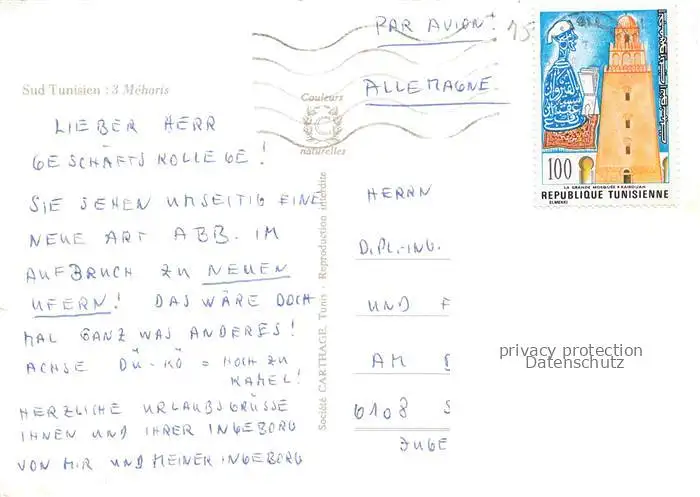 Sud Tunisien : 3 Méharis
LIEBER HERR
GESCHÄFTSKOLLEGE!
SIE SEHEN UMSEITIG EINE
NEUE ART ABB. IM
AUFBRUCH ZU NEUEN
UFERN! DAS WÄRE DOCH
MAL GANZ WAS ANDERES!
ACHSE DÜ-KÖ = HOCH ZU
KAMEL!
HERZLICHE URLAUBSGRÜSSE
IHNEN UND IHRER INGEBORG
VON MIR UND MEINER INGEBORG
Couleurs
naturelles
Société CARTHAGE Tunis - Reproduction interdite
PAR AVION!
15
ALLEMAGNE
HERRN
DIPL.-ING.
UND F
AM
6108 S
JUGE
100
LA GRANDE MOSQUEE KAIROUAN
REPUBLIQUE TUNISIENNE
ELMEKKI
الجمهورية التونسية
privacy protection
Datenschutz